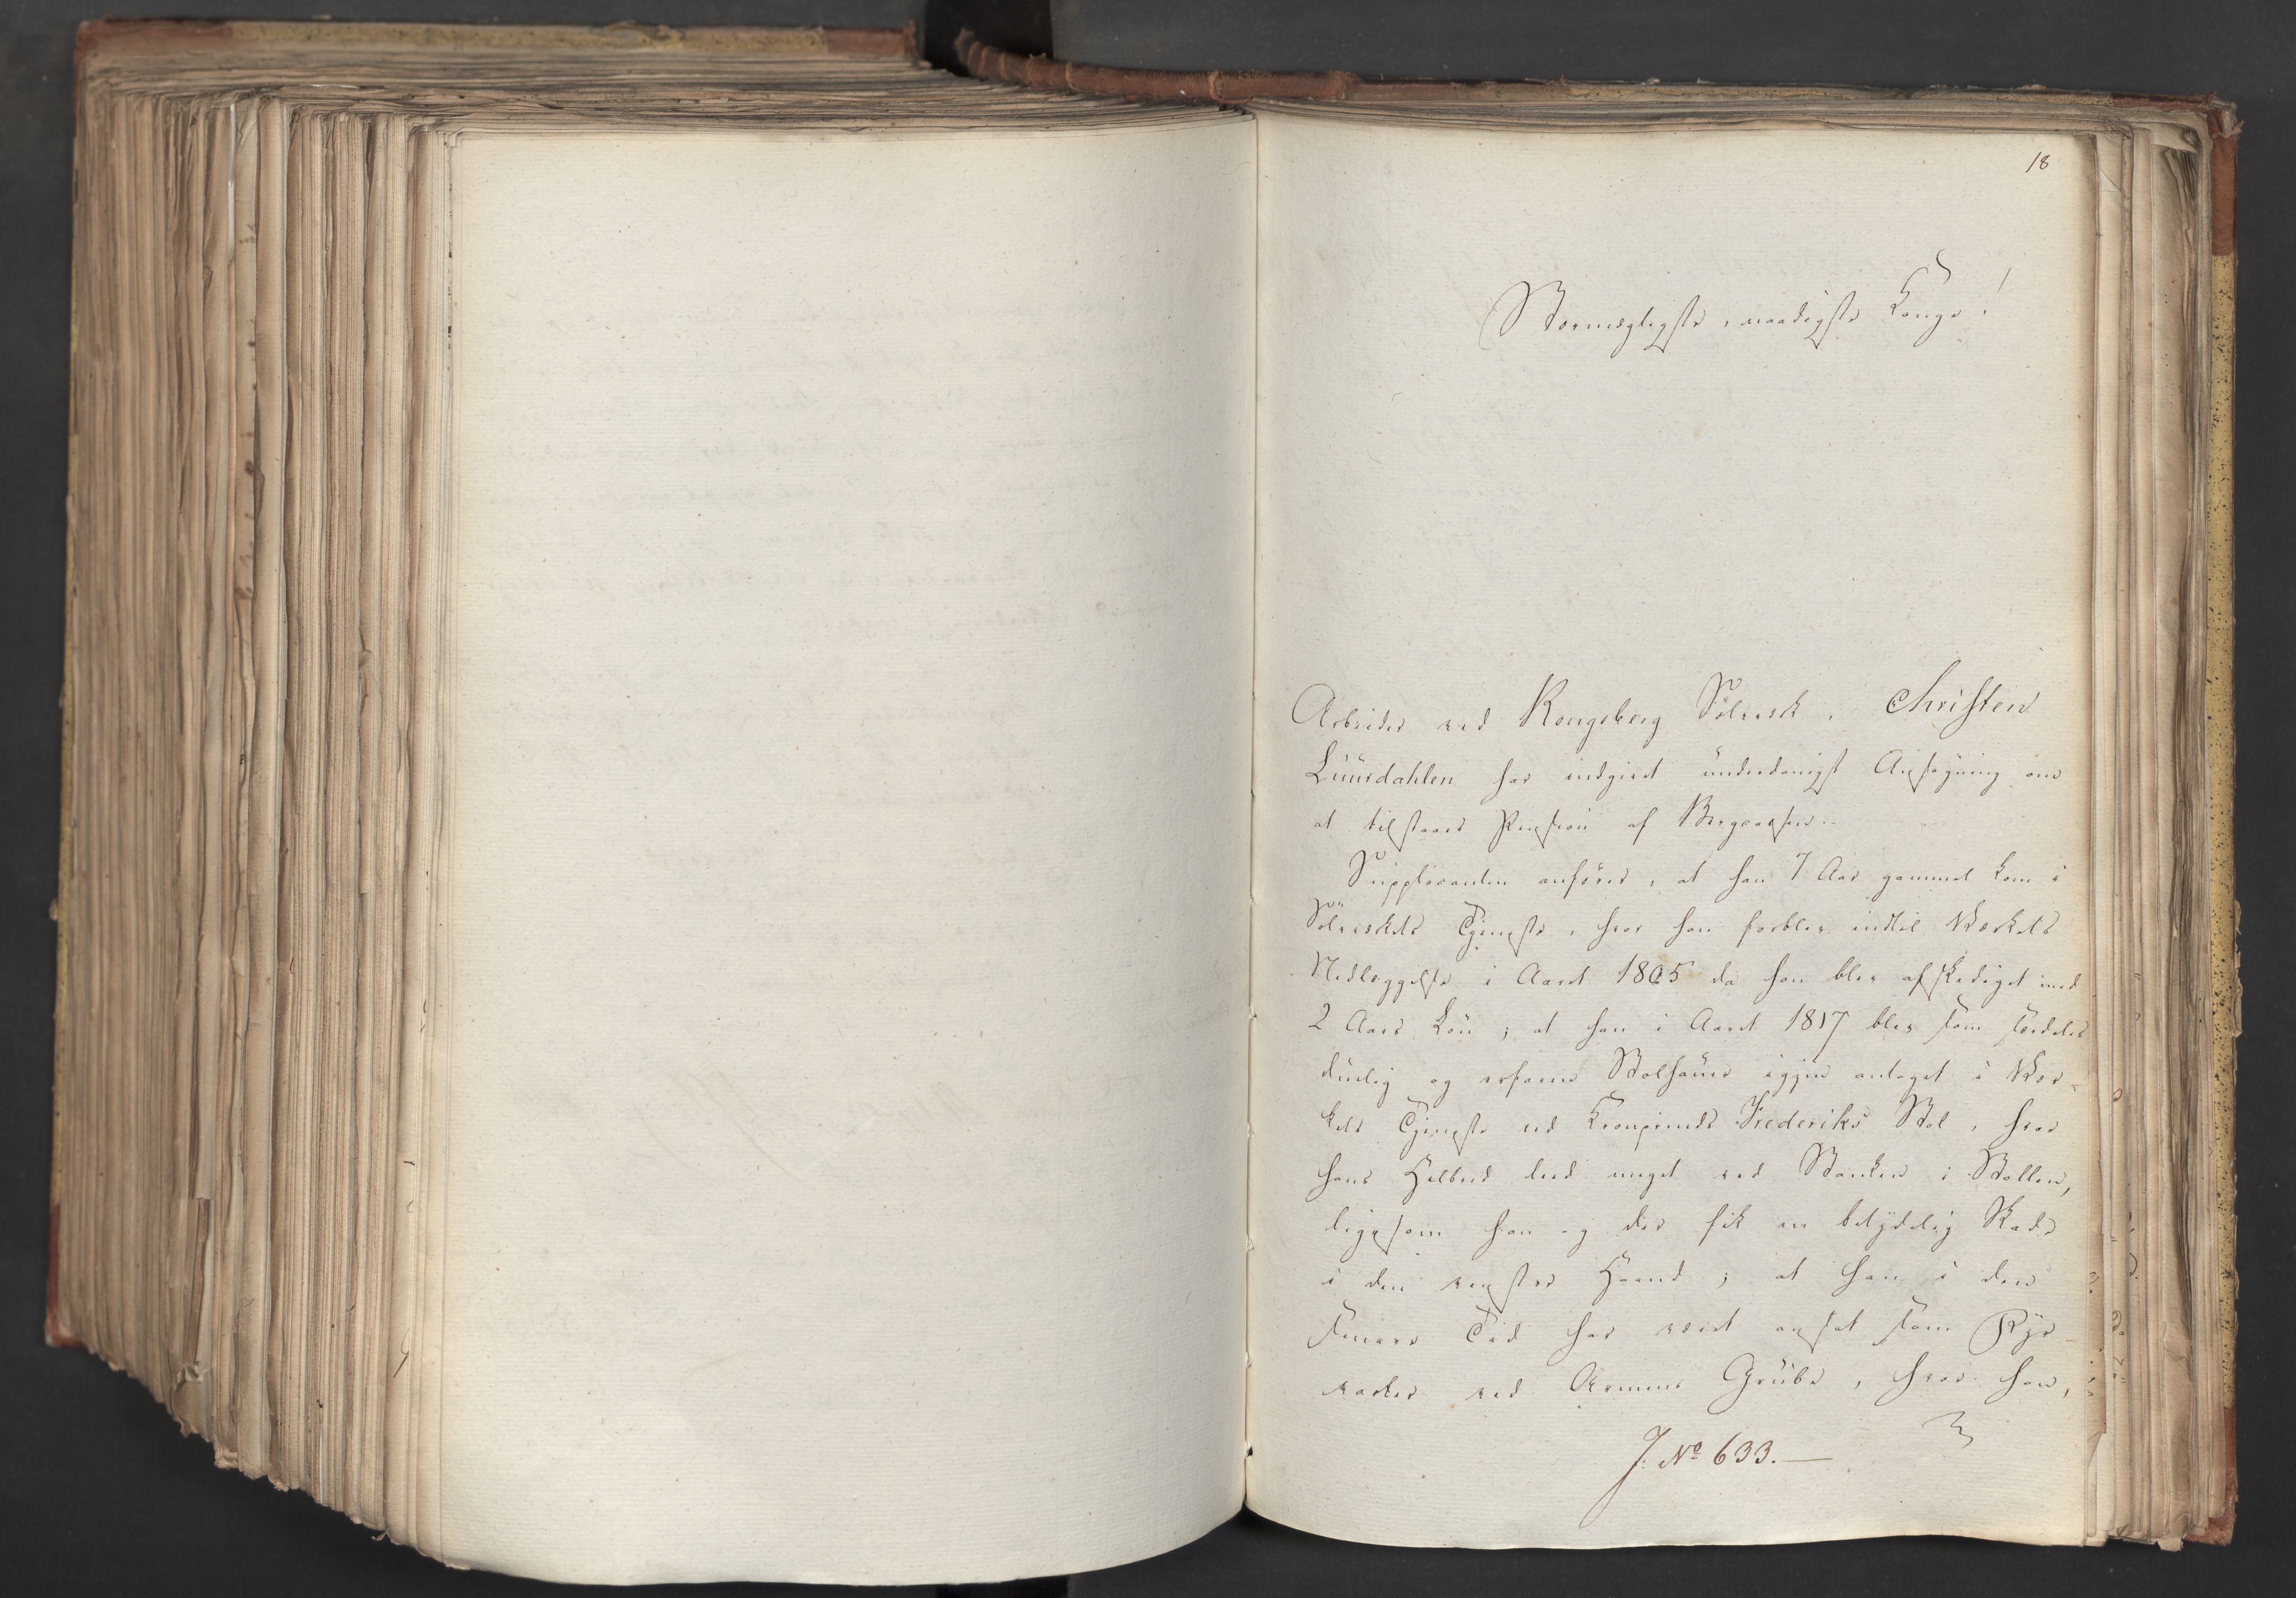 18
Stormægtigste, naadigste Konge!
Arbeider ved Kongsberg Sølvværk, Christen
Luurdahlen har indgivet underdanigst Ansøgning om
at tilstaaes Pension af Bergcassen.
Supplicanten anfører, at han 7 Aar gammel kom i
Sølvværkets Tjeneste, hvor han forblev indtil Værkets
Nedlæggelse i Aaret 1805 da han blev afskediget med
2 Aars Løn; at han i Aaret 1817 blev som særdeles
duelig og erfaren Stolhauer igjen antaget i Vær-
kets Tjeneste ved Kronprinds Frederiks Stol, hvor
hans Helbred leed meget ved Stanken i Stollen,
ligesom han og der fik en betydelig Skade
i den venstre Haand; at han i den
senere Tid har været ansat som
vasker ved Armens Grube, hvor han,
J. No 633.—